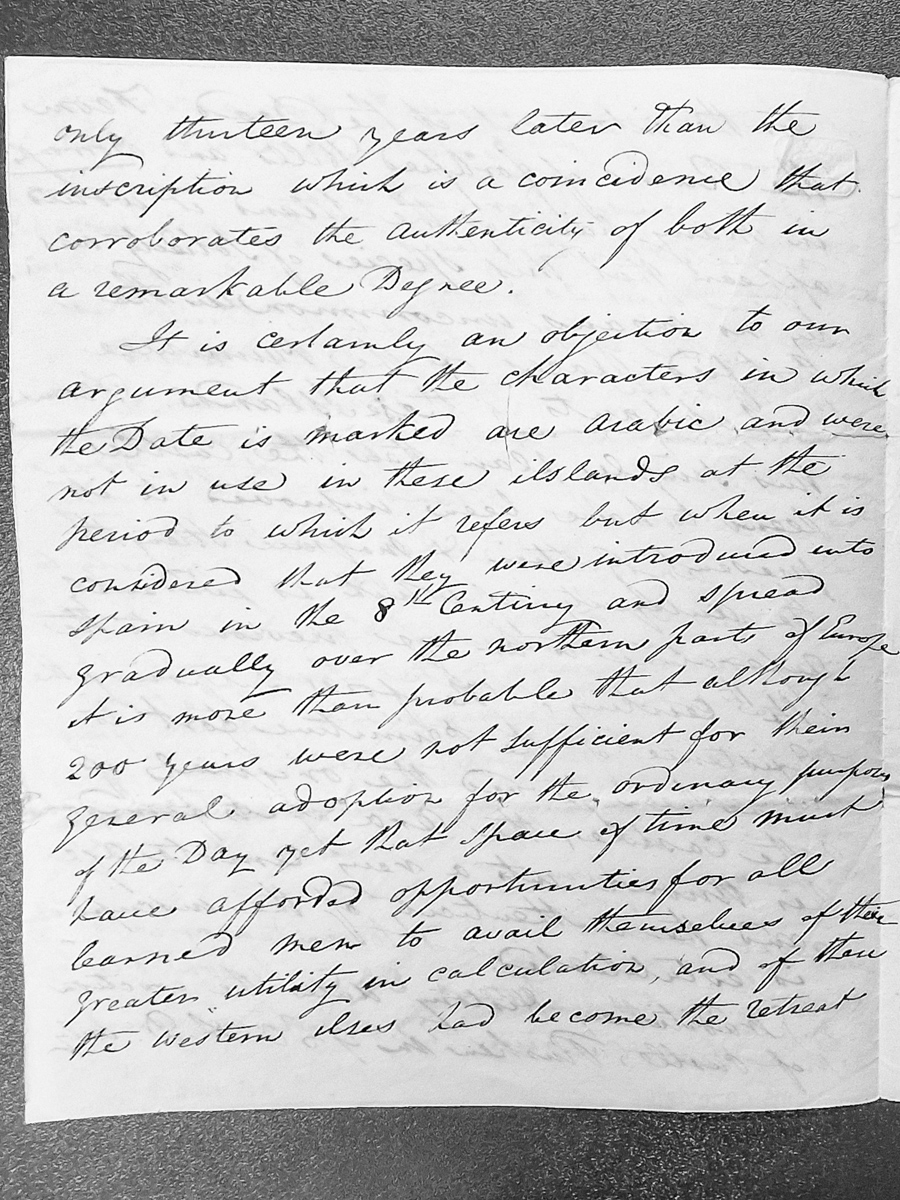 only thirteen years later than the
inscription which is a coincidence that
corroborates the authenticity of both in
a remarkable Degree.
It is certainly an objection to our
argument that the characters in which
the Date is marked are arabic and were
not in use in these ilslands at the
period to which it refers but when it is
considered that they were introduced into
Spain in the 8th Century and spread
gradually over the northern parts of Europe
it is more than probable that although
200 years were not sufficient for their
general adoption for the ordinary purposes
of the Day yet that space of time must
have afforded opportunities for all
learned men to avail themselves of their
greater utility in calculation, and of these
the western ilses had become the retreat